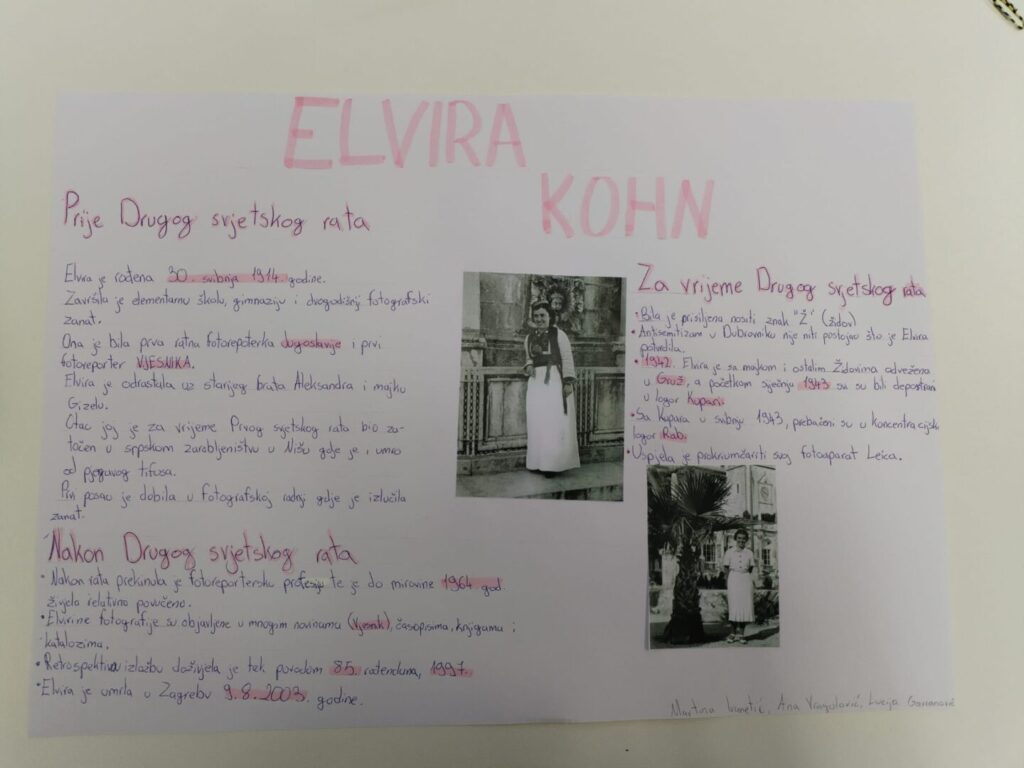 ELVIRA
KOHN
Prije Drugog svjetskog rata
Elvira je rođena 30. svibnja 1914. godine.
Završila je elementarnu školu, gimnaziju i dvogodišnji fotografski
zanat.
Ona je bila prva ratna fotorepoterka Jugoslavije i prvi
fotoreporter VJESNIKA.
Elvira je odrastala uz starijeg brata Aleksandra i majku
Gizelu.
Otac joj je za vrijeme Prvog svjetskog rata bio za-
točen u srpskom zarobljeništvu u Nišu gdje je i umro
od pjegavog tifusa.
Prvi posao je dobila u fotografskoj radnji gdje je izučila
zanat.
Nakon Drugog svjetskog rata
• Nakon rata prekinula je fotoreportersku profesiju te je do mirovine 1964. god.
živjela relativno povučeno.
• Elvirine fotografije su objavljene u mnogim novinama (Vjesnik), časopisima, knjigama i
katalozima.
• Retrospektivnu izložbu doživjela je tek povodom 85. rođenduna, 1997.
• Elvira je umrla u Zagrebu 9.8.2003. godine.
Za vrijeme Drugog svjetskog rata
• Bila je prisiljena nositi znak "Ž" (židov)
• Antisemitizam u Dubrovniku nije niti postojao što je Elvira
potvrdila.
• 1942. Elvira je sa majkom i ostalim Židovima odvežena
u Gruž, a početkom siječnja 1943 su su bili deportirani
u logor Kupari.
• Sa Kupara u svibnju 1943, prebačeni su u koncentracijski
logor Rab.
• Uspjela je prokrijumčariti svoj fotoaparat Leica.
Martina Ana Lucija